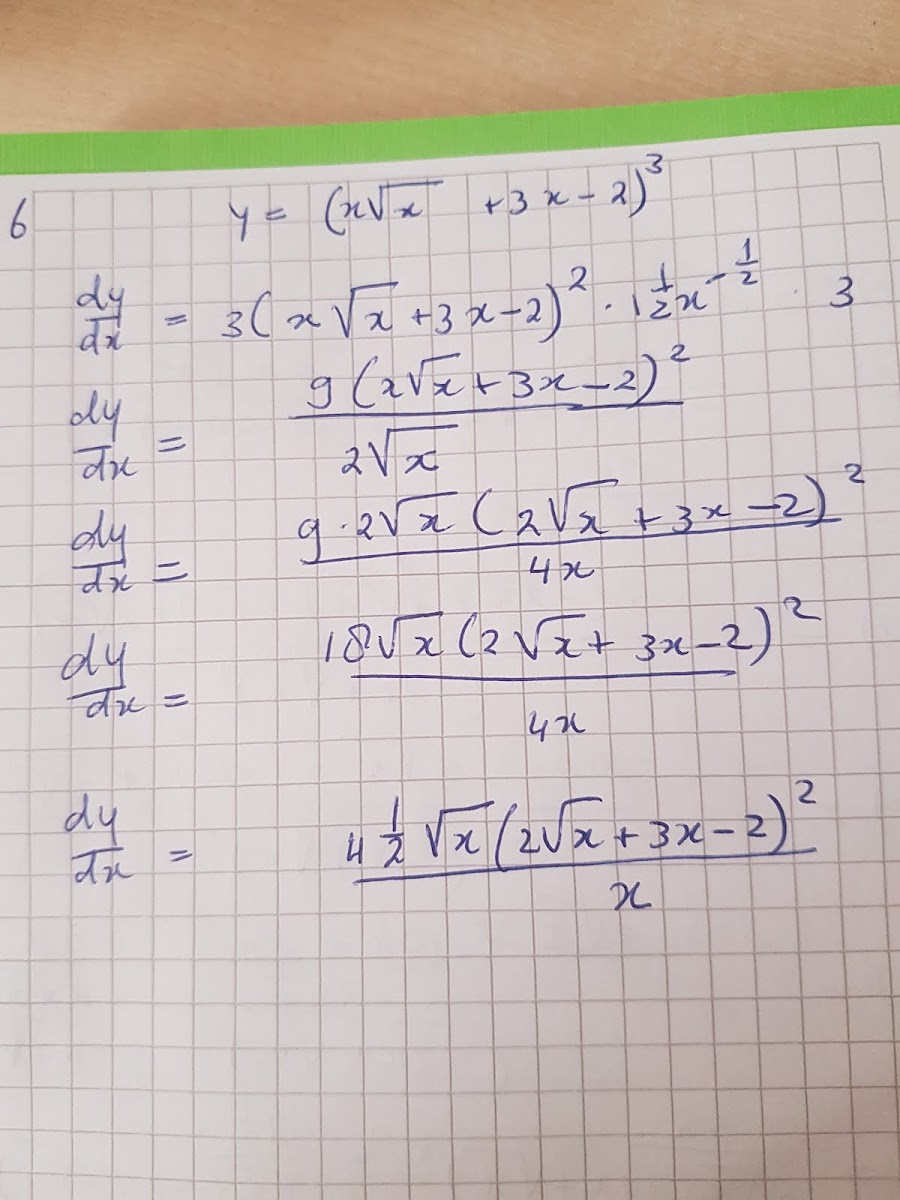 6 y = (x√x + 3x - 2)³
dy/dx = 3(x√x + 3x - 2)² · 1 1/2 x^(-1/2) · 3
dy/dx = 9(x√x + 3x - 2)² / 2√x
dy/dx = 9·2√x (2√x + 3x - 2)² / 4x
dy/dx = 18√x (2√x + 3x - 2)² / 4x
dy/dx = 4 1/2 √x (2√x + 3x - 2)² / x